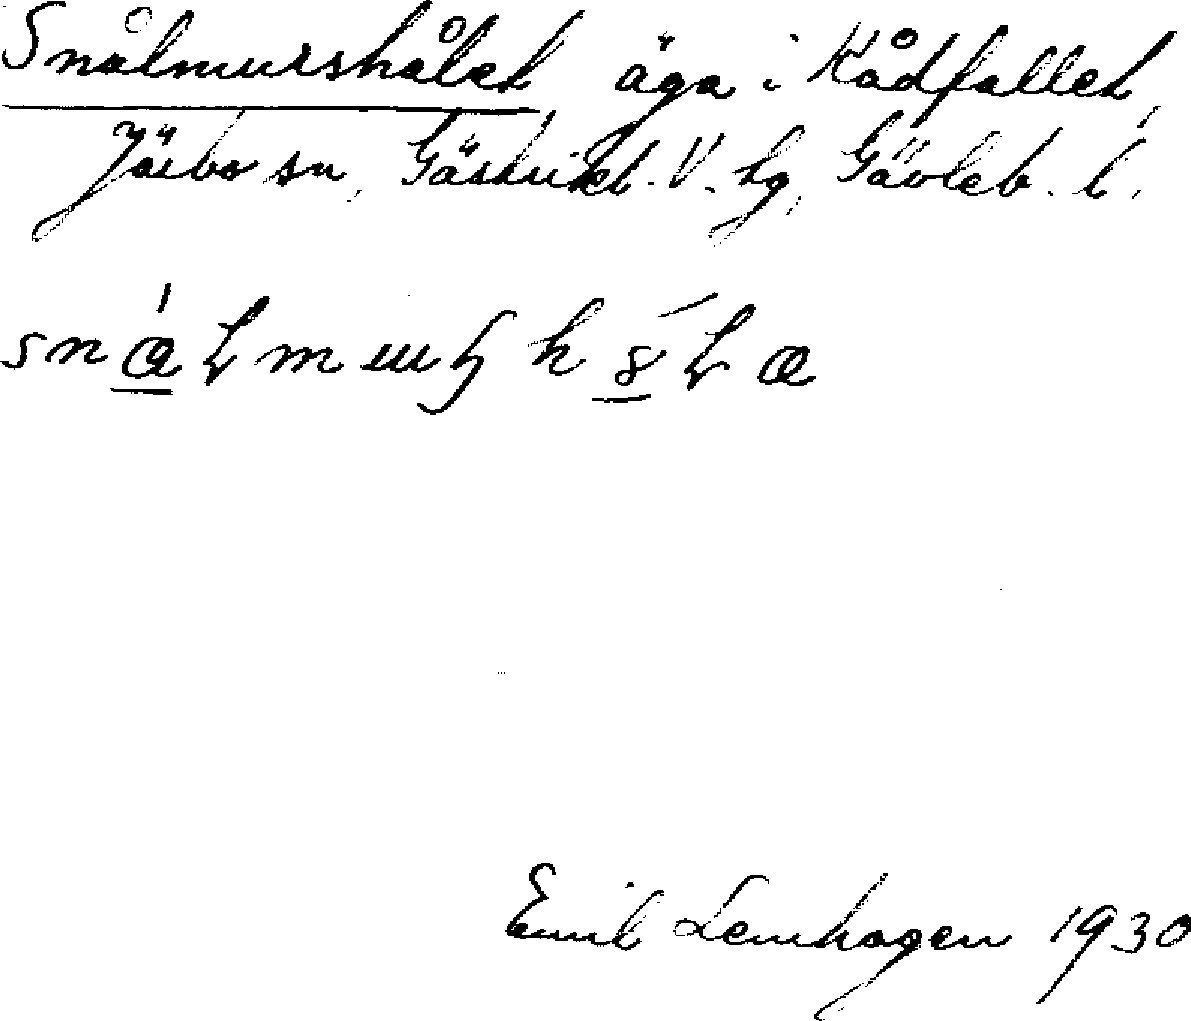 Snålmurshålet äga i Kådfallet,
Järbo sn, Gästrikl. V. hg, Gävleb. l.
Emil Lenhagen 1930